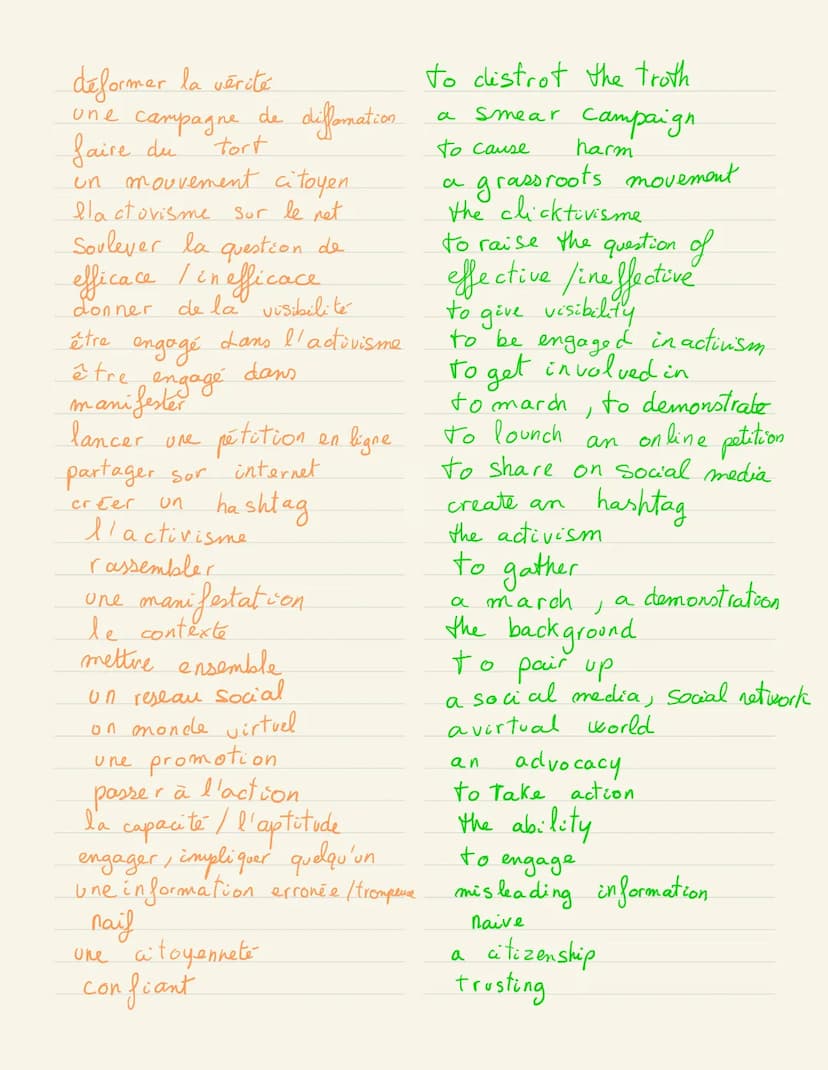 déformer la vérité to distrot the troth
une campagne de diffomation a smear campaign
faire du tort to cause harm
un mouvement citoyen a grassroots movement
l'activisme sur le net the clicktivisme
soulever la question de to raise the question of
efficace / inefficace effective / ineffective
donner de la visibilité to give visibility
être engagé dans l'activisme to be engaged in activism
être engagé dans to get involved in
manifester to march, to demonstrate
lancer une pétition en ligne to lounch an online petition
partager sur internet to share on social media
créer un hashtag create an hashtag
l'activisme the activism
rassembler to gather
une manifestation a march, a demonstration
le contexte the background
mettre ensemble to pair up
un reseau social a social media, social network
un monde virtuel a virtual world
une promotion an advocacy
passer à l'action to take action
la capacité / l'aptitude the ability
engager, impliquer quelqu'un to engage
une information erronée / trompeuse misleading information
naïf naive
une citoyenneté a citizenship
confiant trusting